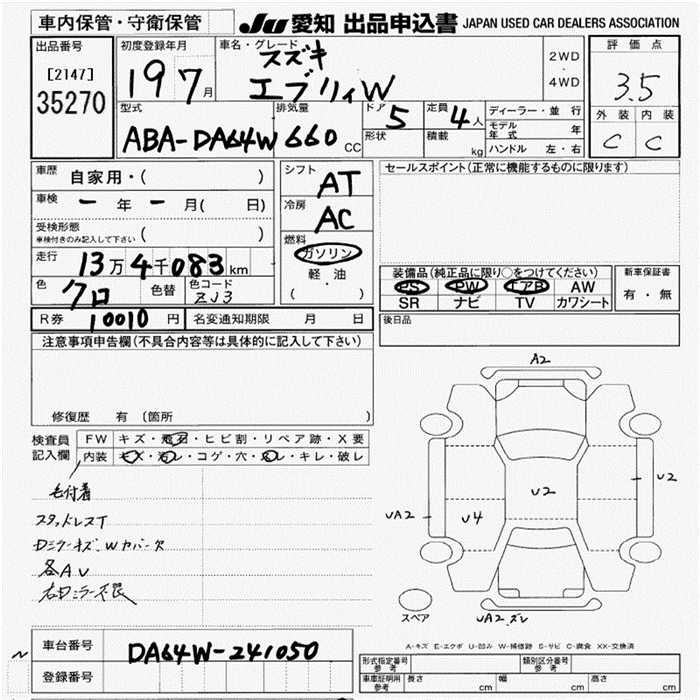 車内保管・守衛保管
JU 愛知 出品申込書 JAPAN USED CAR DEALERS ASSOCIATION
出品番号
[2147]
35270
初度登録年月
19 7月
車名・グレード
スズキ
エブリィW
2WD
・
4WD
評価点
3.5
外装 内装
C C
型式
ABA-DA64W
排気量
660 CC
ドア 5
形状
定員 4人
積載 kg
ディーラー・並行
モデル年式 年
ハンドル 左・右
車歴 自家用・( )
車検 ー年ー月( 日)
受検形態
車検付きのみ記入して下さい ( )
走行 13万4千083km
色 クロ 色替 色コード ZJ3
シフト AT
冷房 AC
燃料
ガソリン
軽・油
( )
セールスポイント(正常に機能するものに限ります)
装備品(純正品に限り○をつけてください)
PS PW エアB AW
SR ナビ TV カワシート
新車保証書
有・無
R券 10010円 名変通知期限 月 日
後日品
注意事項申告欄(不具合内容等は具体的に記入して下さい)
修復歴 有(箇所 )
検査員記入欄
FW キズ・飛石・ヒビ割・リペア跡・X要
内装 キズ・汚レ・コゲ・穴・スレ・キレ・破レ
毛付着
スタッドレスT
各AU
A2
U2
U2
UA2
U4
UA2.ズレ
スペア
A-キズ E-エクボ U-凹み W-補修跡 S-サビ C-腐食 XX-交換済
車台番号 DA64W-241050
登録番号
形式指定番号参考 類別区分番号参考
車庫証明用参考 長さ cm 幅 cm 高さ cm